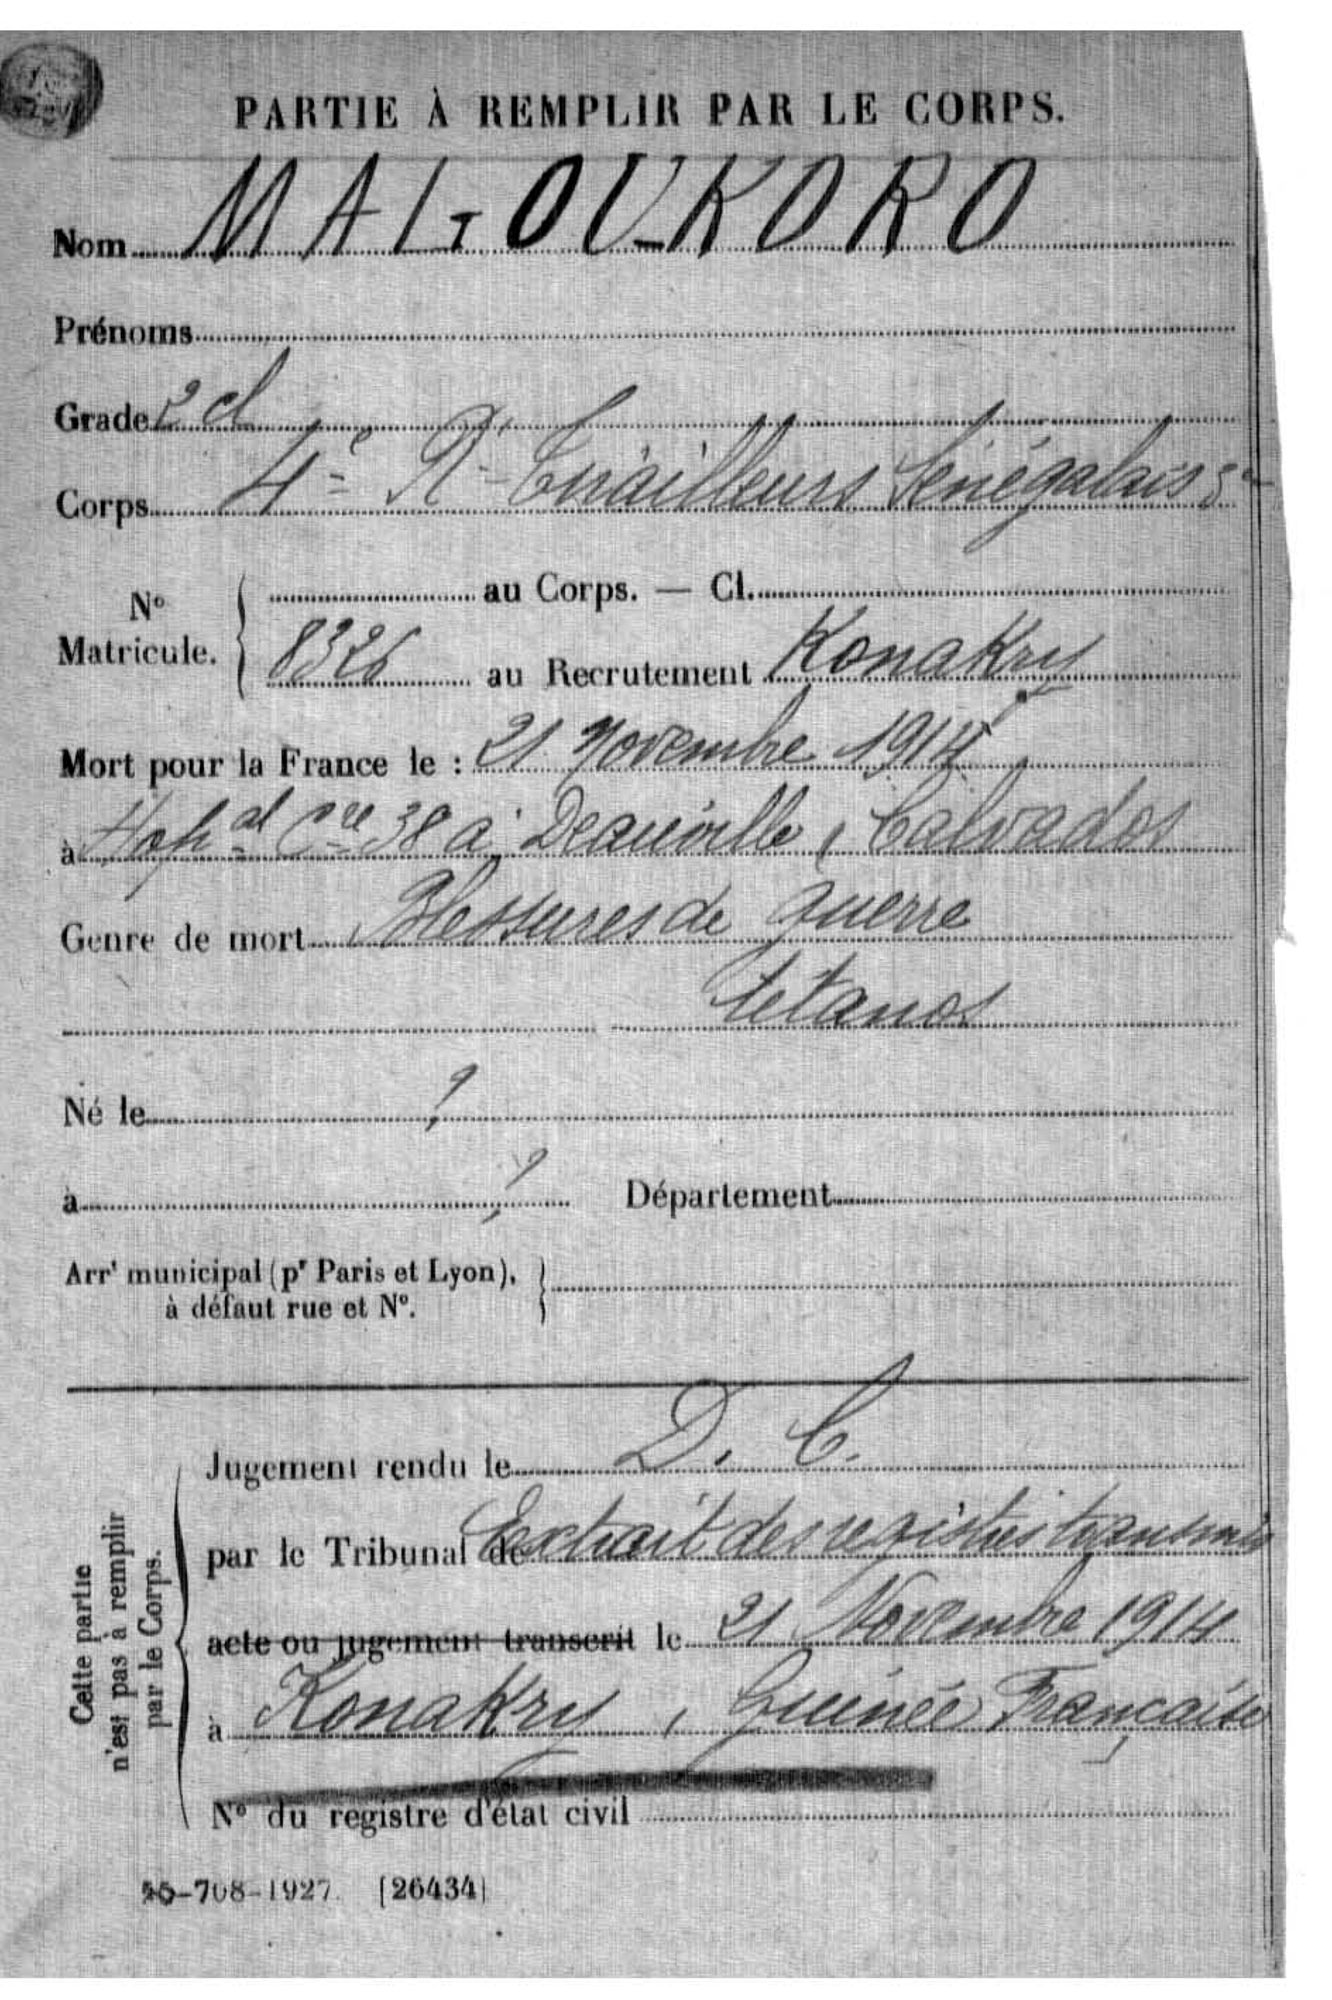 PARTIE À REMPLIR PAR LE CORPS.
Nom MALGOUKORO
Prénoms
Grade 2 cl
Corps 4e Rt Tirailleurs Sénégalais
N° Matricule.
au Corps. — Cl.
8326 au Recrutement Konakry
Mort pour la France le : 21 Novembre 1914
à Hopal Cre 38 à Deauville, Calvados
Genre de mort Blessures de guerre
tétanos
Né le ?
à ? Département
Arrt municipal (pr Paris et Lyon),
à défaut rue et N°.
Cette partie
n'est pas à remplir
par le Corps.
Jugement rendu le D. C.
par le Tribunal de Extrait des registres transmis
acte ou jugement transcrit le 21 Novembre 1914
à Konakry, Guinée Française
N° du registre d'état civil
-708-1927. [26434]